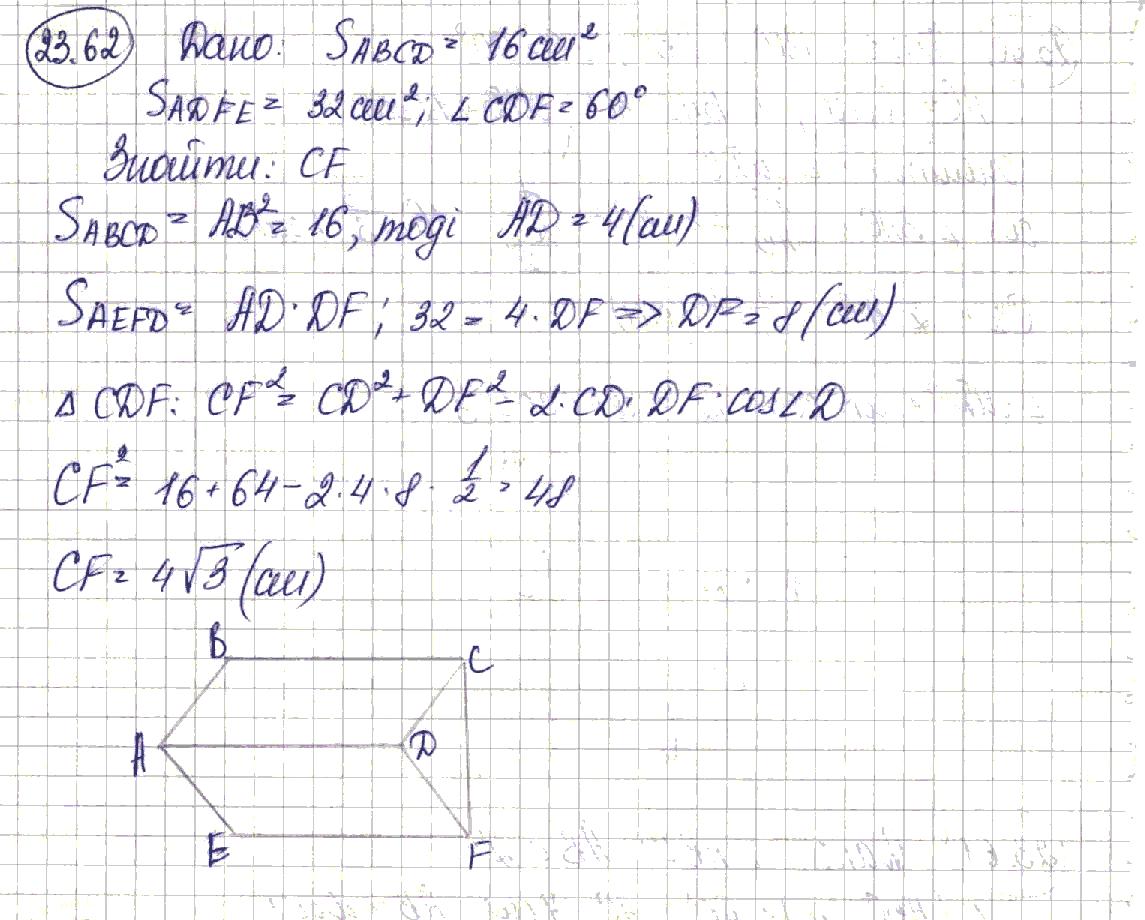 23.62 Дано: SABCD = 16 см²
SADFE = 32 см²; ∠CDF = 60°
Знайти: CF
SABCD = AB² = 16, тоді AD = 4 (см)
SAEFD = AD · DF; 32 = 4 · DF => DF = 8 (см)
Δ CDF: CF² = CD² + DF² - 2·CD·DF·cos∠D
CF² = 16 + 64 - 2·4·8·1/2 = 48
CF = 4√3 (см)
B
C
A
D
E
F